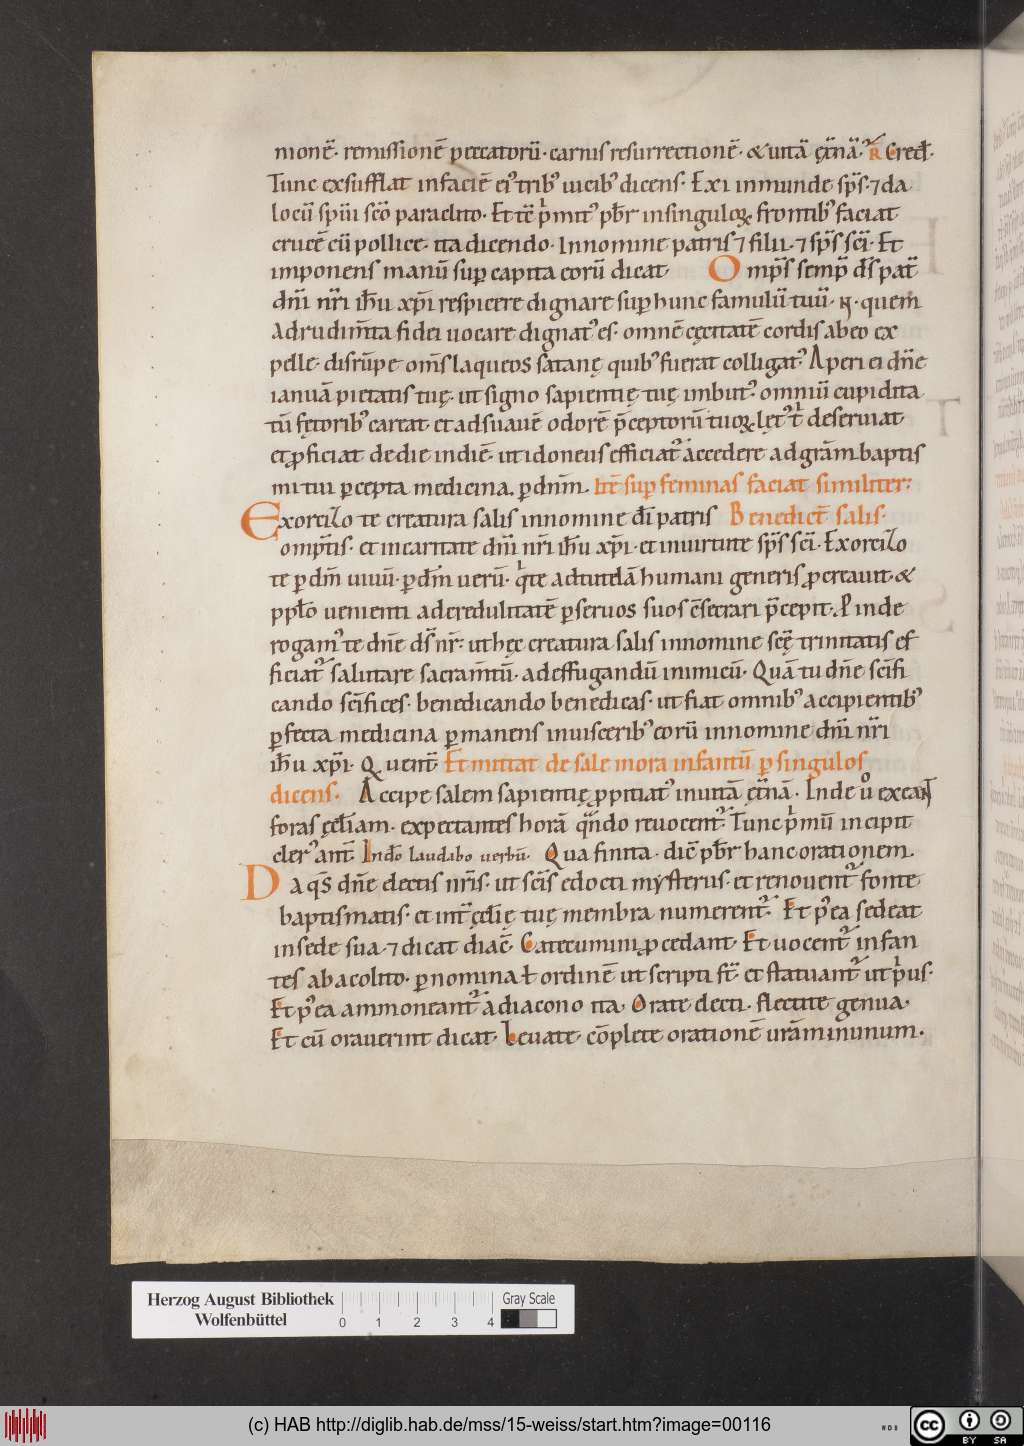 nionē· remissionē peccatorū· carnis resurrectionē· & uitā ęt̄nā· R̄ Cred̄·
Tunc exsufflat in faciē ei' trib' uicib' dicens· Exi inmunde sp̄s· ⁊ da
locū spūi sc̄o paraclito· Et tē pͥmit' pb̄r in singuloꝝ frontib' faciat
crucē cū pollice· ita dicendo· In nomine patris ⁊ filii· ⁊ sp̄s sc̄i· Et
imponens manū suꝑ capita eorū dicat· Omp̄s semp̄ ds̄ pat̄
dn̄i nr̄i ih̄u xp̄i respicere dignare suꝑ hunc famulū tuū· N· quem
ad rudim̄ta fidei uocare dignat' es· omnē cęcitatē cordis ab eo ex
pelle· disrūpe om̄s laqueos satanę quib' fuerat colligat' Aperi ei dn̄e
ianuā pietatis tuę· ut signo sapientię tuę imbut' omniū cupidita
tū fętorib' careat· et ad suauē odorē p̄ceptorū tuoꝝ lęt' t̄ deseruiat
et ꝓficiat de die in diē· ut idoneus efficiat' accedere ad grām baptis
mi tui ꝑcepta medicina. ꝑ dn̄m. Itē suꝑ feminas faciat similiter:
Exorcizo te creatura salis in nomine dī patris Benedict̄ salis·
omp̄tis· et in caritate dn̄i nr̄i ih̄u xp̄i· et in uirtute sp̄s sc̄i· Exorcizo
te ꝑ dm̄ uiuū· ꝑ dm̄ uerū· qͥ te ad tutelā humani generis ꝓcreauit· &
pplo uenienti ad credulitatē ꝑ seruos suos c̄secrari p̄cepit· Pinde
rogam' te dn̄e ds̄ nr̄· ut hęc creatura salis in nomine scę̄ trinitatis ef
ficiat' salutare sacram̄tū· ad effugandū inimicū· Quā tu dn̄e sc̄ifi
cando sc̄ifices· benedicando benedicas· ut fiat omnib' accipientib'
ꝑfecta medicina ꝑmanens in uiscerib' eorū in nomine dn̄i nr̄i
ih̄u xp̄i· Q uent̄ Et mittat de sale in ora infantū ꝑ singulos
dicens· Accipe salem sapientię ꝓpitiat' in uitā ęt̄nā· Inde uͦ exeant
foras ęccl̄iam· expectantes horā qn̄do reuocent' Tunc pͥmū incipit
cler' ant̄ In dō laudabo uerbū· Qua finita· dic̄ pb̄r hanc orationem.
Da q̄s dn̄e electis nr̄is· ut sc̄is edocti mysteriis· et renouent' fonte
baptismatis· et int̄ ęccl̄ię tuę membra numerent' Et p'ea sedeat
in sede sua· ⁊ dicat diac̄· Catecumini ꝓcedant· Et uocent' infan
tes ab acolito· ꝑ nomina ł ordinē ut scripti st̄· et statuant' ut pͥus·
Et p'ea ammoneant' a diacono ita· Orate electi· flectite genua·
Et cū orauerint dicat· Leuate· cōplete orationē urām in unum·
Herzog August Bibliothek
Wolfenbüttel
0 1 2 3 4
Gray Scale
(c) HAB http://diglib.hab.de/mss/15-weiss/start.htm?image=00116
WDB
cc BY SA